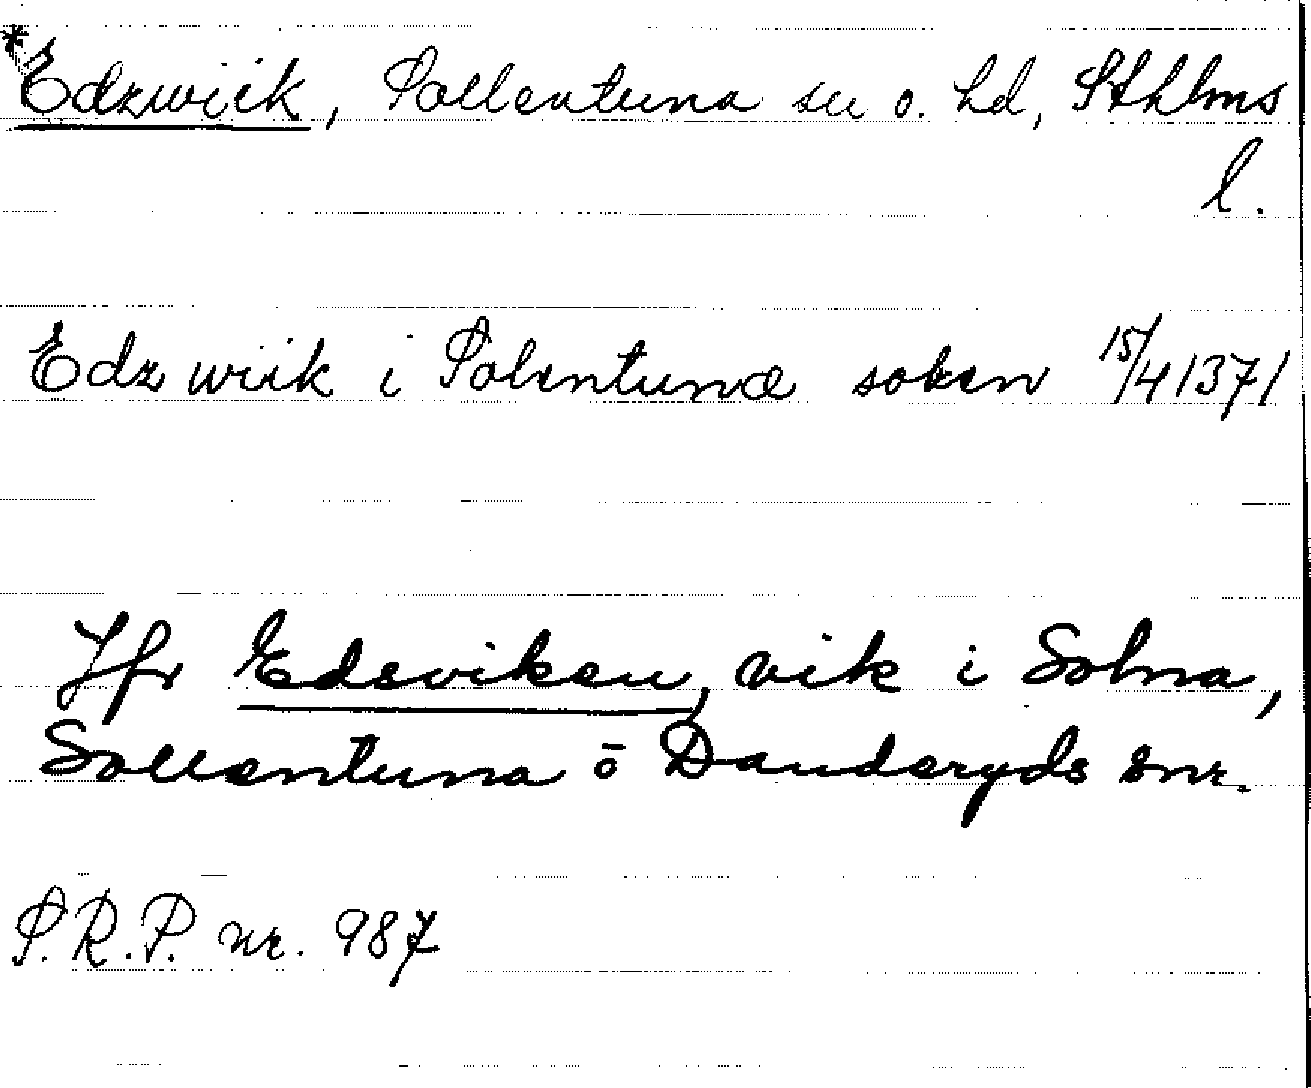 *Edzwiik, Sollentuna sn o. hd, Sthlms
l.
Edzwiik i Solentunæ soken 15/4 1371
Jfr Edsviken, vik i Solna,
Sollentuna o Danderyds snr.
S.R.P. nr. 987